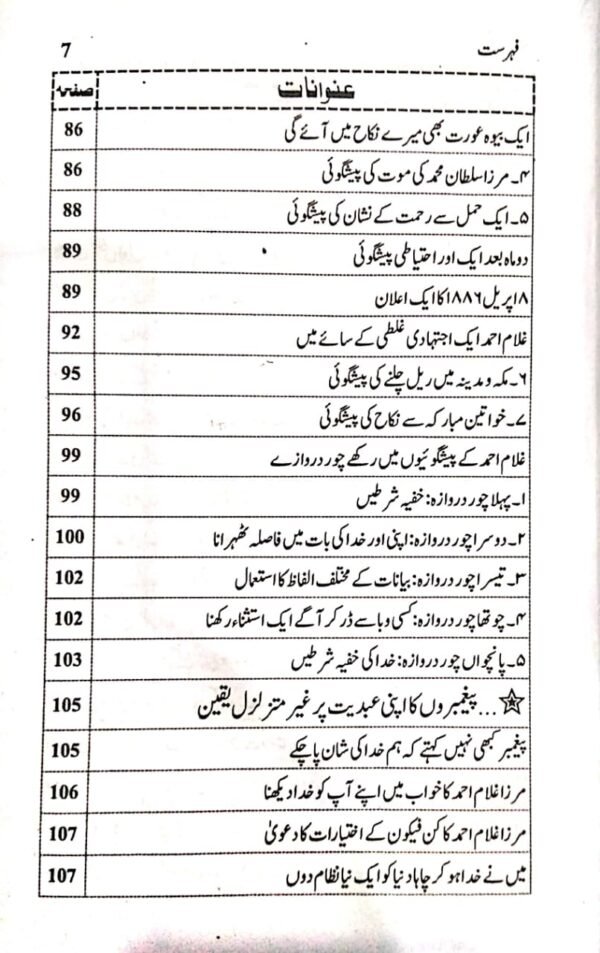 فہرست 7
عنوانات صفحہ
ایک بیوہ عورت بھی میرے نکاح میں آئے گی 86
۴۔ مرزا سلطان محمد کی موت کی پیشگوئی 86
۵۔ ایک حمل سے رحمت کے نشان کی پیشگوئی 88
دو ماہ بعد ایک اور احتیاطی پیشگوئی 89
۸ اپریل ۱۸۸۶ کا ایک اعلان 89
غلام احمد ایک اجتہادی غلطی کے سائے میں 92
۶۔ مکہ و مدینہ میں ریل چلنے کی پیشگوئی 95
۷۔ خواتین مبارکہ سے نکاح کی پیشگوئی 96
غلام احمد کے پیشگوئیوں میں رکھے چور دروازے 99
۱۔ پہلا چور دروازہ: خفیہ شرطیں 99
۲۔ دوسرا چور دروازہ: اپنی اور خدا کی بات میں فاصلہ ٹھہرانا 100
۳۔ تیسرا چور دروازہ: بیانات کے مختلف الفاظ کا استعمال 102
۴۔ چوتھا چور دروازہ: کسی وبا سے ڈر کر آگے ایک استثناء رکھنا 102
۵۔ پانچواں چور دروازہ: خدا کی خفیہ شرطیں 103
... پیغمبروں کا اپنی عبدیت پر غیر متزلزل یقین 105
پیغمبر کبھی نہیں کہتے کہ ہم خدا کی شان پا چکے 105
مرزا غلام احمد کا خواب میں اپنے آپ کو خدا دیکھنا 106
مرزا غلام احمد کا کن فیکون کے اختیارات کا دعویٰ 107
میں نے خدا ہو کر چاہا دنیا کو ایک نیا نظام دوں 107